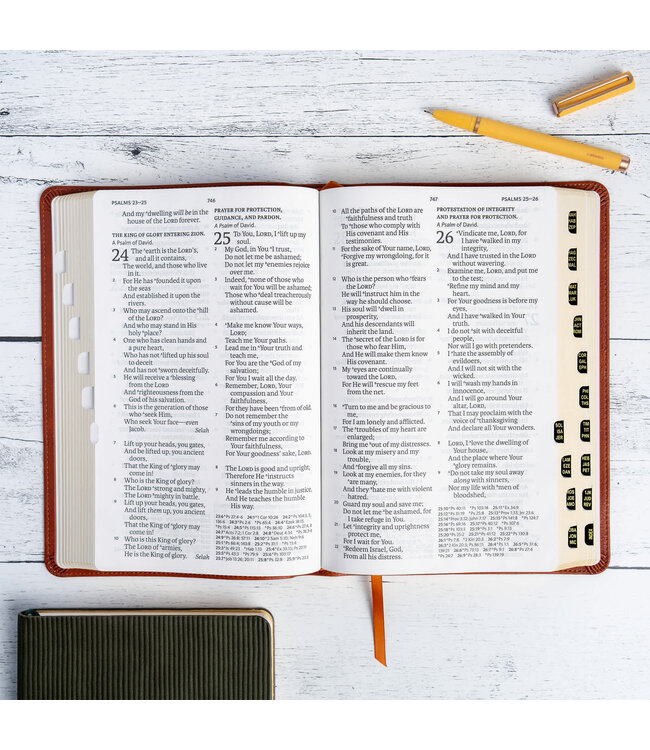 PSALMS 23–25
746
And my dwelling will be in the
house of the LORD forever.
THE KING OF GLORY ENTERING ZION.
A Psalm of David.
24 The earth is the LORD'S,
and all it contains,
The world, and those who live
in it.
2 For He has founded it upon
the seas
And established it upon the
rivers.
3 Who may ascend onto the hill
of the LORD?
And who may stand in His
holy place?
4 One who has clean hands and
a pure heart,
Who has not lifted up his soul
to deceit
And has not sworn deceitfully.
5 He will receive a blessing
from the LORD
And righteousness from the
God of his salvation.
6 This is the generation of those
who seek Him,
Who seek Your face—even
Jacob. Selah
7 Lift up your heads, you gates,
And be lifted up, you ancient
doors,
That the King of glory may
come in!
8 Who is the King of glory?
The LORD strong and mighty,
The LORD mighty in battle.
9 Lift up your heads, you gates,
And lift them up, you ancient
doors,
That the King of glory may
come in!
10 Who is this King of glory?
The LORD of armies,
He is the King of glory. Selah
PRAYER FOR PROTECTION,
GUIDANCE, AND PARDON.
A Psalm of David.
25 To You, LORD, I lift up my
soul.
2 My God, in You I trust,
Do not let me be ashamed;
Do not let my enemies rejoice
over me.
3 Indeed, none of those who
wait for You will be ashamed;
Those who deal treacherously
without cause will be
ashamed.
4 Make me know Your ways,
LORD;
Teach me Your paths.
5 Lead me in Your truth and
teach me,
For You are the God of my
salvation;
For You I wait all the day.
6 Remember, LORD, Your
compassion and Your
faithfulness,
For they have been from of old.
7 Do not remember the
sins of my youth or my
wrongdoings;
Remember me according to
Your faithfulness,
For Your goodness' sake, LORD.
8 The LORD is good and upright;
Therefore He instructs
sinners in the way.
9 He leads the humble in justice,
And He teaches the humble
His way.
767
PSALMS 25–26
10 All the paths of the LORD are
faithfulness and truth
To those who comply with
His covenant and His
testimonies.
11 For the sake of Your name, LORD,
Forgive my wrongdoing, for it
is great.
12 Who is the person who fears
the LORD?
He will instruct him in the
way he should choose.
13 His soul will dwell in
prosperity,
And his descendants will
inherit the land.
14 The secret of the LORD is for
those who fear Him,
And He will make them know
His covenant.
15 My eyes are continually
toward the LORD,
For He will rescue my feet
from the net.
16 Turn to me and be gracious to
me,
For I am lonely and afflicted.
17 The troubles of my heart are
enlarged;
Bring me out of my distresses.
18 Look at my misery and my
trouble,
And forgive all my sins.
19 Look at my enemies, for they
are many,
And they hate me with violent
hatred.
20 Guard my soul and save me;
Do not let me be ashamed, for
I take refuge in You.
21 Let integrity and uprightness
protect me,
For I wait for You.
22 Redeem Israel, God,
From all his distress.
PROTESTATION OF INTEGRITY
AND PRAYER FOR PROTECTION.
A Psalm of David.
26 Vindicate me, LORD, for
I have walked in my
integrity,
And I have trusted in the LORD
without wavering.
2 Examine me, LORD, and put me
to the test;
Refine my mind and my
heart.
3 For Your goodness is before my
eyes,
And I have walked in Your
truth.
4 I do not sit with deceitful
people,
Nor will I go with pretenders.
5 I hate the assembly of
evildoers,
And I will not sit with the
wicked.
6 I will wash my hands in
innocence,
And I will go around Your
altar, LORD,
7 That I may proclaim with the
voice of thanksgiving
And declare all Your wonders.
8 LORD, I love the dwelling of
Your house,
And the place where Your
glory remains.
9 Do not take my soul away
along with sinners,
Nor my life with men of
bloodshed,
NAH
HAB
ZEP
HAG
ZEC
MAL
MAT
MAR
LUK
JHN
ACT
ROM
COR
GAL
EPH
PHI
COL
THS
SOL
ISA
JER
TIM
TIT
PHN
LAM
EZE
DAN
HEB
JAS
PET
HOS
JOE
AMO
1JN
JUD
REV
OBA
JON
MIC